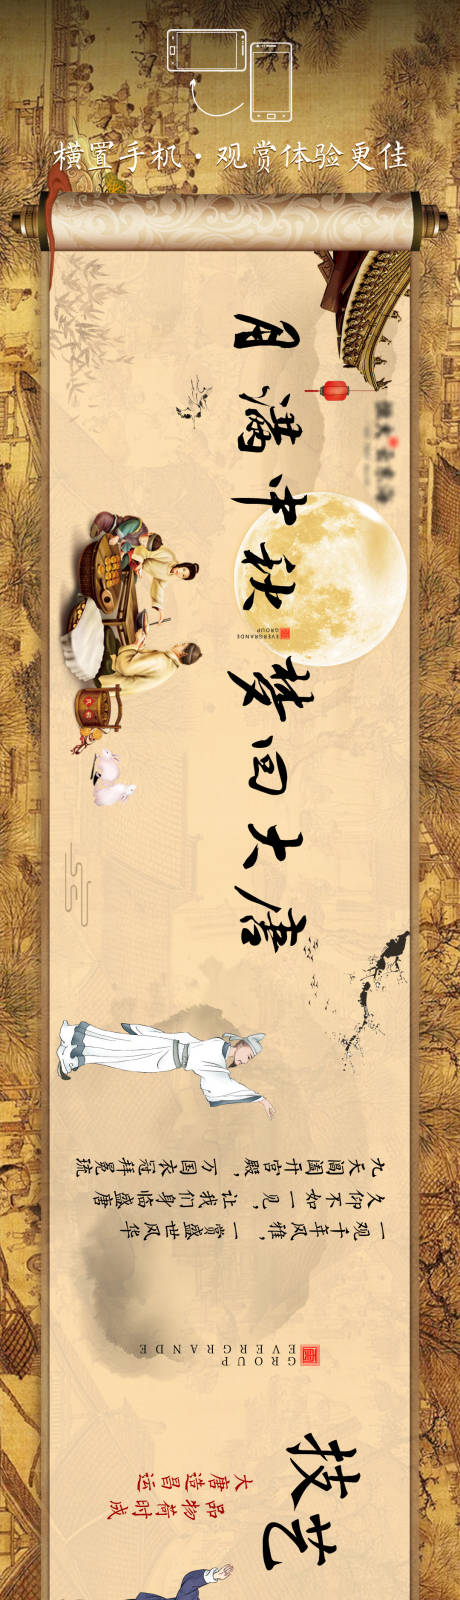 横置手机·观赏体验更佳
月满中秋
EVERGRANDE
GROUP
梦回大唐
九天阊阖开宫殿，万国衣冠拜冕琉
久仰不如一见，让我们身临盛唐
一观千年风雅，一赏盛世风华
EVERGRANDE
GROUP
技艺
大唐造昌运
品物荷时成